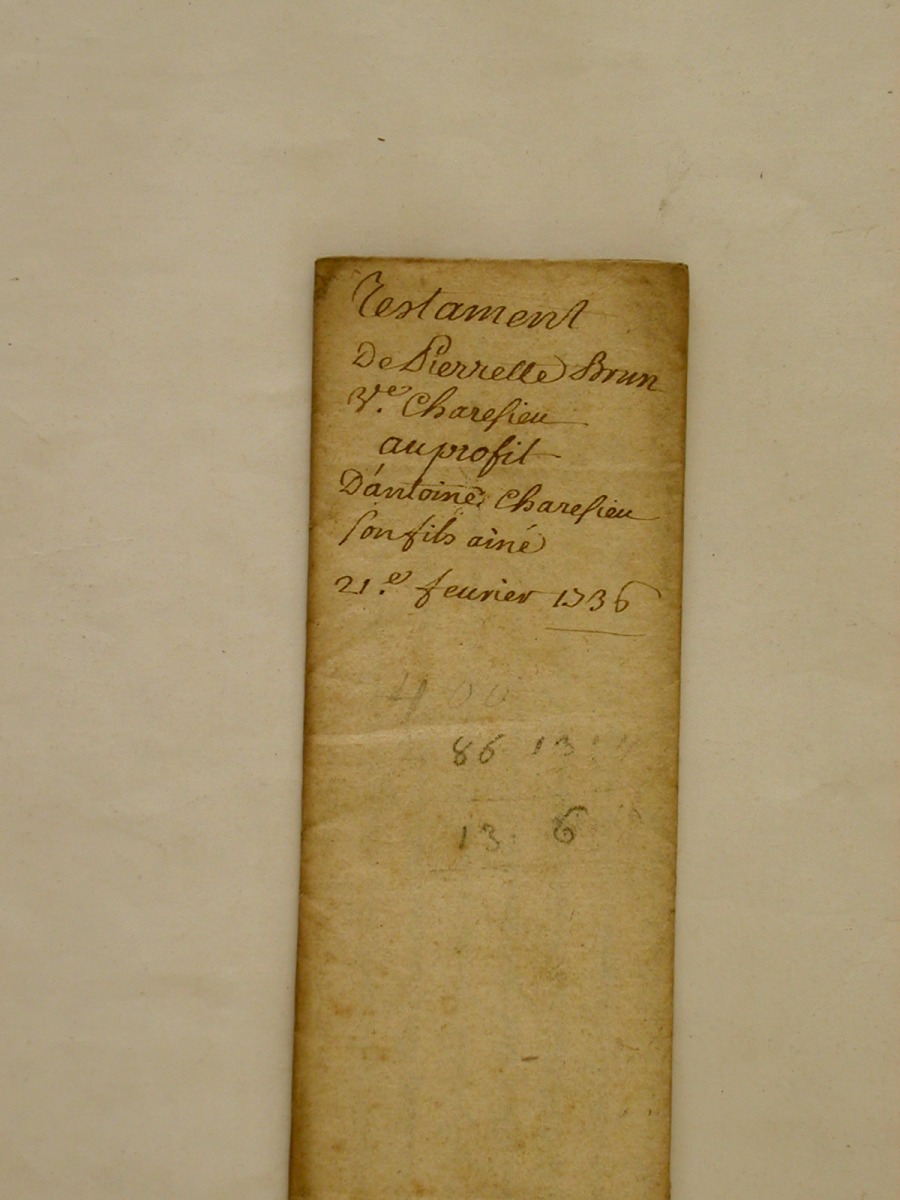 Testament
De Pierrelle Brun
Vᵉ. Charesieu
au profit
D'antoine Charesieu
son fils ainé
21.ᵉ feurier 1736
400
86 13
13 6